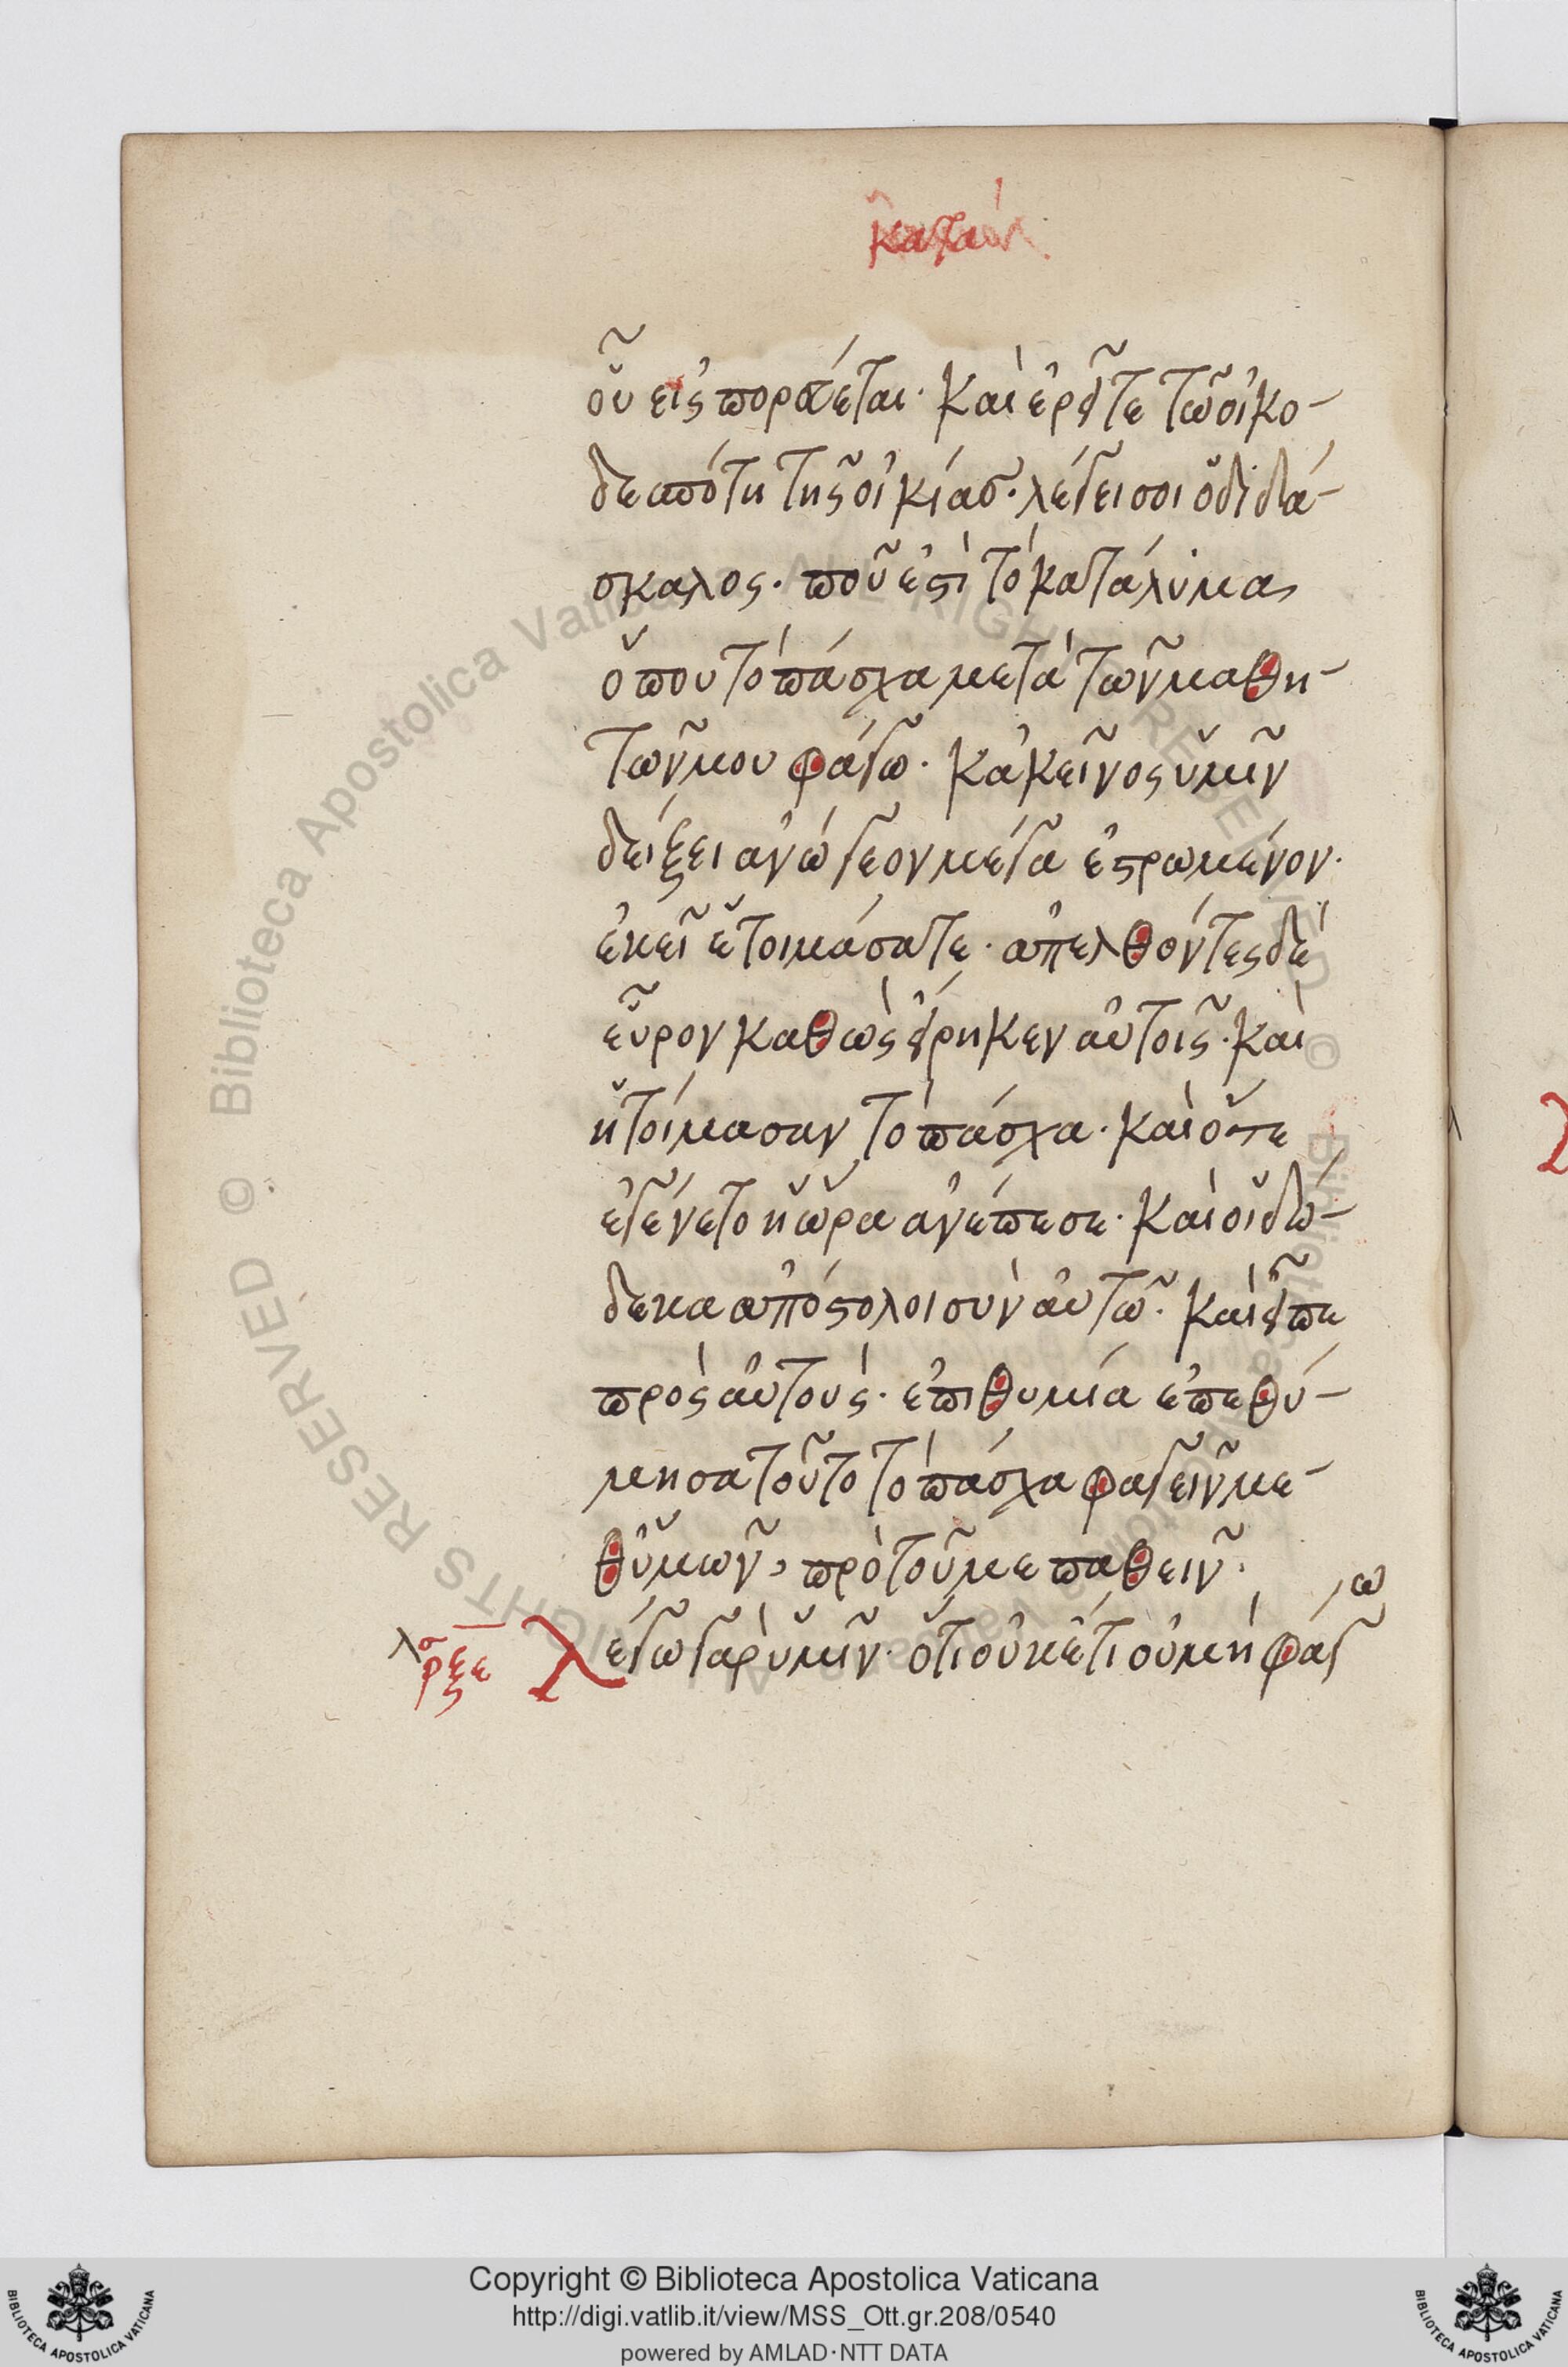 οὗ εἰσπορεύεται· καὶ ἐρεῖτε τῶ οἰκο-
δεσπότη τῆς οἰκίας· λέγει σοι ὁ διδά-
σκαλος· ποῦ ἐστὶ τὸ κατάλυμα
ὅπου τὸ πάσχα μετὰ τῶν μαθη-
τῶν μου φάγω· κἀκεῖνος ὑμῖν
δείξει ἀνώγεον μέγα ἐστρωμένον·
ἐκεῖ ἑτοιμάσατε· ἀπελθόντες δὲ
εὗρον καθὼς εἴρηκεν αὐτοῖς· καὶ
ἡτοίμασαν τὸ πάσχα· καὶ ὅτε
ἐγένετο ἡ ὥρα ἀνέπεσε· καὶ οἱ δώ-
δεκα ἀπόστολοι σὺν αὐτῶ· καὶ εἶπε
πρὸς αὐτούς· ἐπιθυμία ἐπεθύ-
μησα τοῦτο τὸ πάσχα φαγεῖν με-
θ' ὑμῶν, πρὸ τοῦ με παθεῖν·
λέγω γὰρ ὑμῖν· ὅτι οὐκέτι οὐ μὴ φάγω
Copyright © Biblioteca Apostolica Vaticana
http://digi.vatlib.it/view/MSS_Ott.gr.208/0540
powered by AMLAD·NTT DATA
BIBLIOTECA APOSTOLICA VATICANA
BIBLIOTECA APOSTOLICA VATICANA